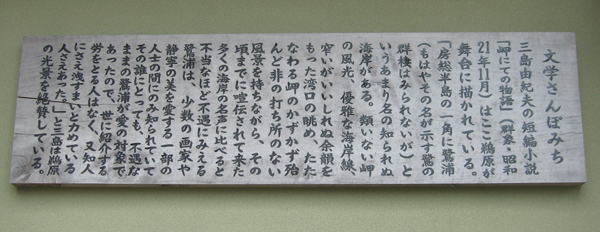 文学さんぽみち
三島由紀夫の短編小説
「岬にての物語」(群像・昭和
21年11月)はここ鵜原が
舞台に描かれている。
「房総半島の一角に鷺浦
(もはやその名が示す鷺の
群棲はみられないが)と
いうあまり名の知られぬ
海岸がある。類いない岬
の風光、優雅な海岸線、
窄いがいいしれぬ余韻を
もった湾口の眺め、たた
なわる岬のかずかず殆
んど非の打ち所のない
風景を持ちながら、その
頃までに喧伝されて来た
多くの海岸の名声に比べると
不当なほど不遇にみえる
鷺浦は、少数の画家や
静寧の美を愛する一部の
人士の間にのみ知られていて
その誰にとっても、不遇な
ままの鷺浦が愛の対象で
あったので、世に紹介する
労をとる人はなく、又知人
にさえ洩すまいと力めている
人さえあった。」と三島は鵜原
の光景を絶賛している。